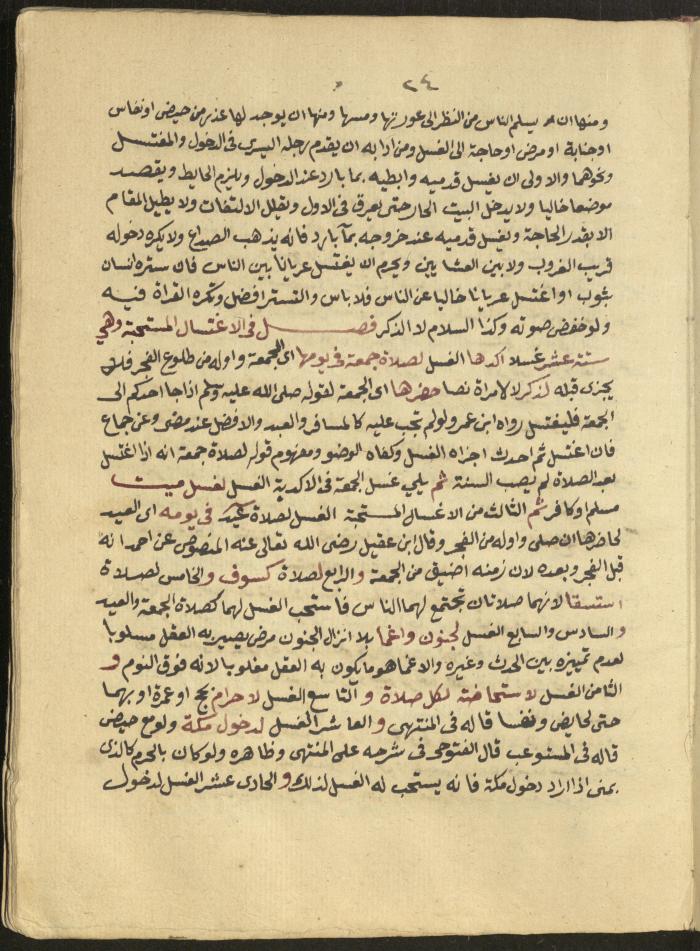 ٢٤
ومنها ان يسلم الناس من النظر الى عورتها ومسها ومنها ان يوجد لها عذر من حيض او نفاس
او جنابة او مرض او حاجة الى الغسل ومن ادابه ان يقدم رجله اليسرى فى الدخول والمغتسل
ونحوهما والاولى ان يغسل قدميه وابطيه بما بارد عند الدخول ويلزم الحايط ويقصد
موضعا خاليا ولا يدخل البيت الحار حتى يعرق فى الاول ويقلل الالتفات ولا يطيل المقام
الا بقدر الحاجة ويغسل قدميه عند خروجه بمآ بارد فانه يذهب الصداع ولا يكره دخوله
قريب الغروب ولا بين العشايين ويحرم ان يغتسل عريانا بين الناس فان ستره انسان
بثوب او اغتسل عريانا خاليا عن الناس فلا باس والتستر افضل وتكره القراة فيه
ولو خفض صوته وكذا السلام لا الذكر فصل فى الاغتسال المستحبة وهي
ستة عشر غسلا اكدها الغسل لصلاة جمعة فى يومها اى الجمعة واوله من طلوع الفجر فلا
يجزى قبله لذكر لا لامراة نصا حضرها اى الجمعة لقوله صلى الله عليه وسلم اذا جا احدكم الى
الجمعة فليغتسل رواه ابن عمر ولو لم تجب عليه كالمسافر والعبد والافضل عند مضى وعن جماع
فان اغتسل ثم احدث اجزاه الغسل وكفاه الوضو ومفهوم قوله لصلاة جمعة انه اذا اغتسل
بعد الصلاة لم يصب السنة ثم يلي غسل الجمعة فى الاكدية الغسل لغسل ميت
مسلم او كافر ثم الثالث من الاغسال المستحبة الغسل لصلاة عيد فى يومه اى العيد
لحاضرها ان صلى واوله من الفجر وقال ابن عقيل رضى الله تعالى عنه المنصوص عن احمد انه
قبل الفجر وبعده لان زمنه اضيق من الجمعة والرابع لصلاة كسوف والخامس لصلاة
استسقا لانهما صلاتان تجتمع لهما الناس فاستحب الغسل لهما كصلاة الجمعة والعيد
والسادس والسابع الغسل لجنون واغما بلا انزال الجنون مرض يصير به العقل مسلوبا
لعدم تمييزه بين الحدث وغيره والاغما هو ما يكون به العقل مغلوبا لانه فوق النوم و
الثامن الغسل لاستحاضة لكل صلاة والتاسع الغسل لاحرام بحج او عمرة او بهما
حتى لحايض ونفسا قاله فى المنتهى والعاشر الغسل لدخول مكة ولو مع حيض
قاله فى المستوعب قال الفتوحى فى شرحه على المنتهى وظاهره ولو كان بالحرم كالذى
بمنى اذا اراد دخول مكة فانه يستحب له الغسل لذلك والحادى عشر الغسل لدخول